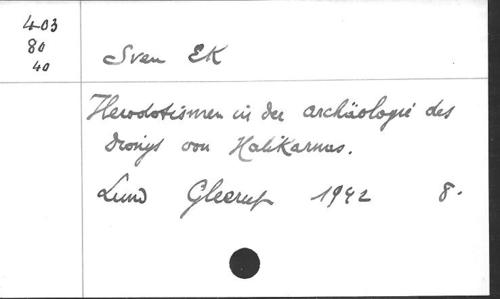 403
80
40
Sven EK
Herodotismen in der archäologie des
Dionys von Halikarnas.
Lund Gleerup 1942 8.